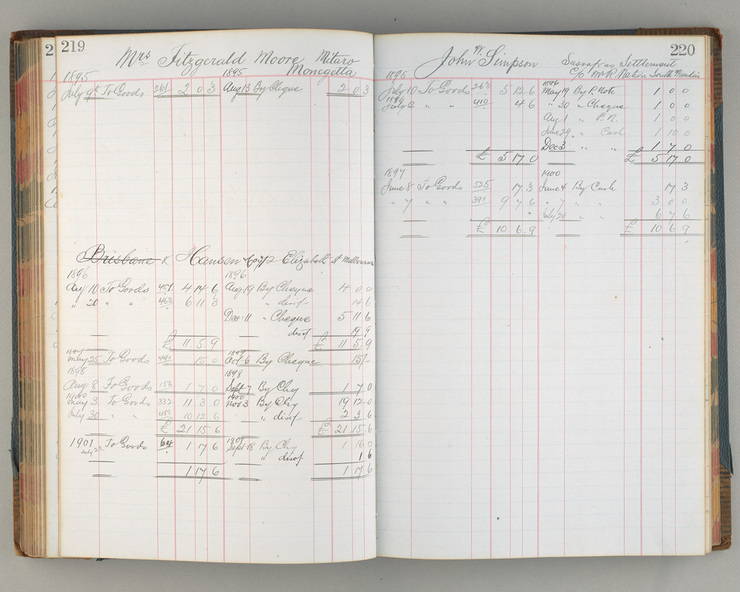 219
Mrs Fitzgerald Moore
Monegetta
1895 1895
July 9th To Goods 261 2 0 3 Aug 13 By Cheque 2 0 3
Brisbane & Hansen Elizabeth St Melbourne
1896 1896
Aug 10 To Goods 451 4 14 6 Aug 19 By Cheque 4 0 0
" 20 " " 6 11 3 " " disct 14 6
Decr 11 " Cheque 5 11 6
disct 19 9
£ 11 5 9 £ 11 5 9
1897 1897
May 25 To Goods 15 0 Oct 6 By Cheque 15/-
1898 1898
Aug 8 To Goods 1 7 0 Sept 7 By Chq 1 7 0
1900 1900
May 3 To Goods 337 11 3 0 Nov 3 By Chq 19 12 0
July 30 " " 10 12 6 " disct 2 3 6
£ 21 15 6 £ 21 15 6
1901 To Goods 64 1 17 6 1901 Sept 18 By Chq 1 16 0
" disct 1 6
1 17 6 1 17 6
220
John W. Simpson Sassafras Settlement
C/o Mr R
1895 1896
July 10 To Goods 263 5 12 6 May 19 By P. Note 1 0 0
" " 410 4 6 " 20 " Cheque 1 0 0
Aug 1 " P.N. 1 0 0
June 29 " Cash 1 10 0
Dec 3 " " 1 7 0
£ 5 17 0 £ 5 17 0
1897 1900
June 8 To Goods 525 17 3 June 4 By Cash 17 3
" 7 " " 391 9 9 6 " 7 " " 3 0 0
July 26 " " 6 9 6
£ 10 6 9 £ 10 6 9